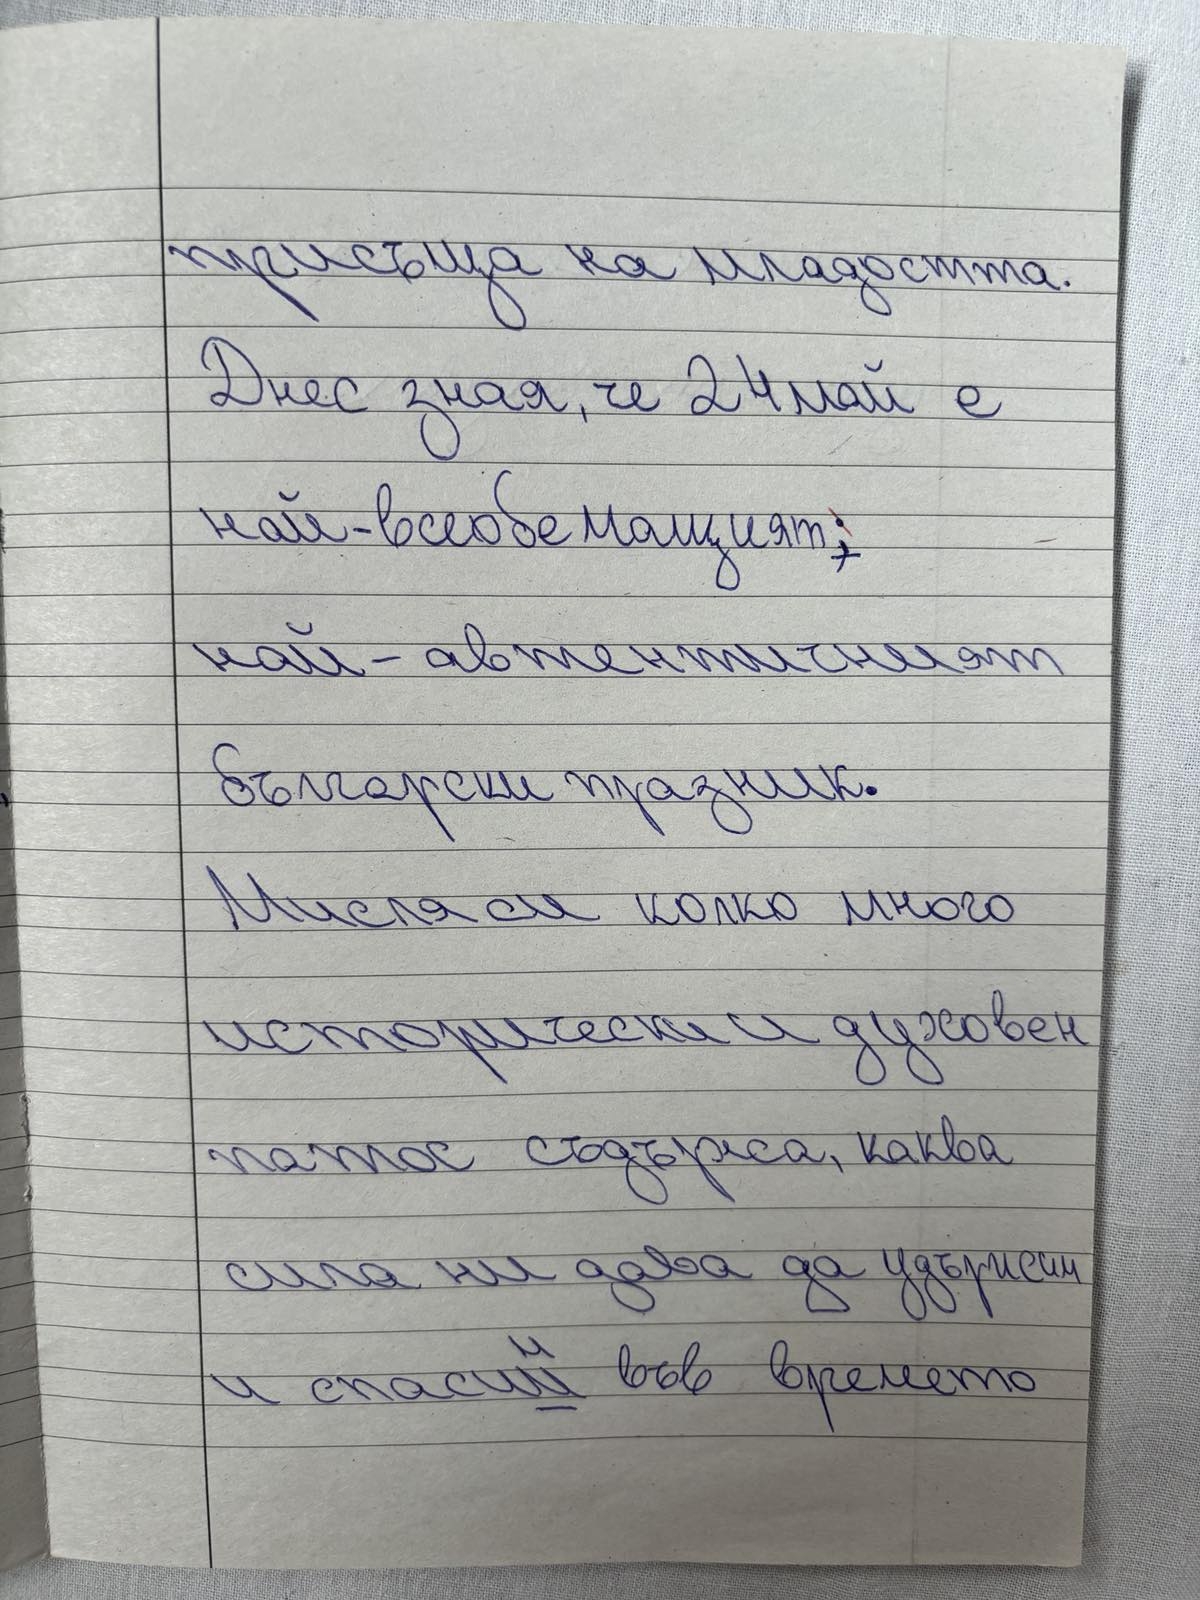 присъща на младостта.
Днес зная, че 24 май е
най-всеобемащият;
най-автентичният
български празник.
Мисля си колко много
исторически и духовен
патос съдържа, каква
сила ни дава да удържим
и спасим във времето